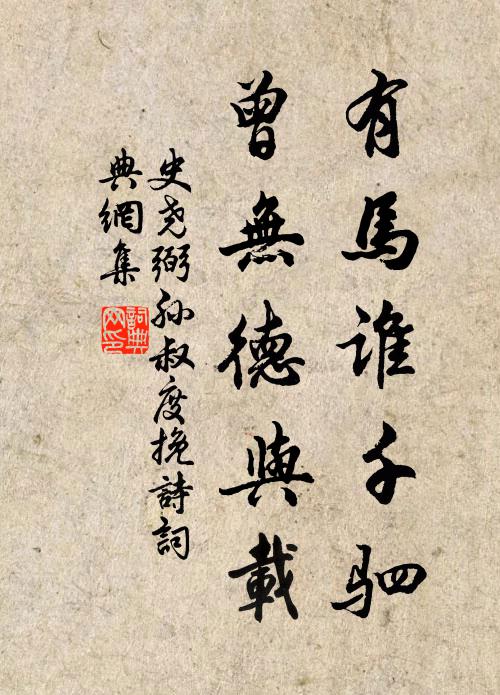 有馬誰千駟
曾無德與載
史尧弼孙叔度挽詩詞
典網集
詞典
网印